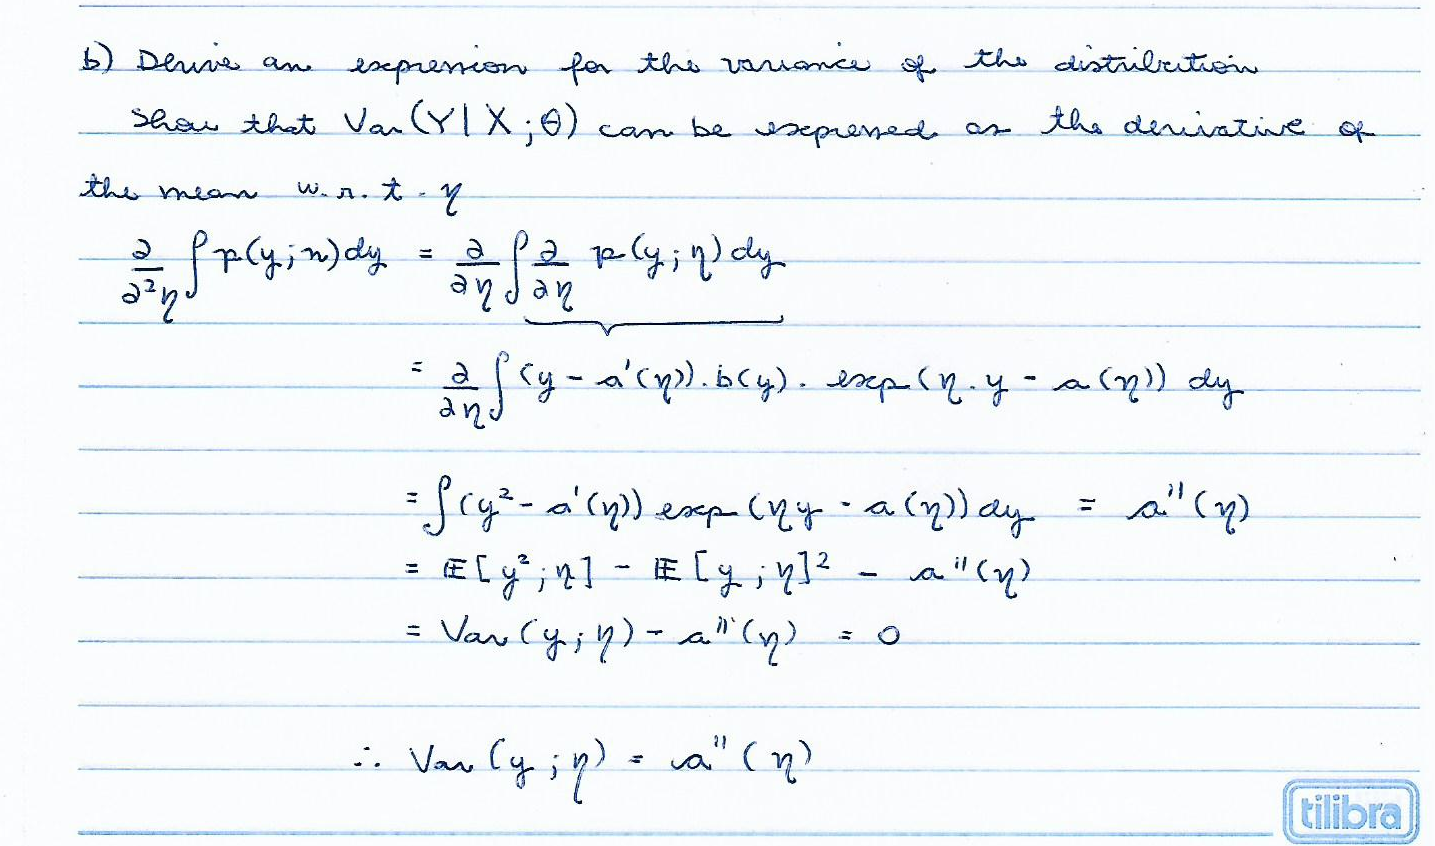 b) Derive an expression for the variance of the distribution
Show that Var(Y|X;θ) can be expressed as the derivative of
the mean w.r.t. η
∂/∂²η ∫ p(y;n)dy = ∂/∂η ∫ ∂/∂η p(y;η)dy
= ∂/∂η ∫ (y - a'(η)).b(y). exp(η.y - a(η)) dy
= ∫ (y² - a'(η)) exp(ηy - a(η)) dy = a''(η)
= 𝔼[y²;η] - 𝔼[y;η]² - a''(η)
= Var(y;η) - a''(η) = 0
∴ Var(y;η) = a''(η)
tilibra